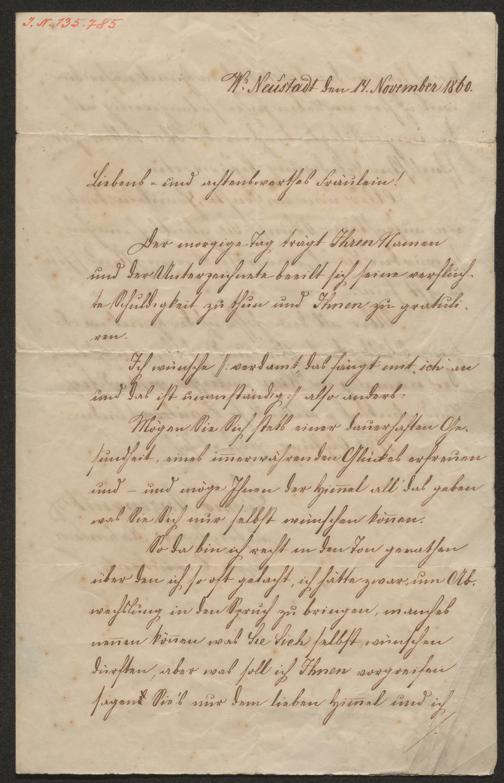 J. N. 135.785
Wr. Neustadt den 14. November 1860.
Liebens- und achtenswerthes Fräulein!
Der morgige Tag trägt Ihren Namen
und der Unterzeichnete beeilt sich, seine verfluch-
te Schuldigkeit zu thun und Ihnen zu gratuli-
ren.
Ich wünsche /: verdamt, das fängt mit „ich“ an
und das ist unanständig :/ also anders:
Mögen Sie Sich stets einer dauerhaften Ge-
sundheit, eines immerwährenden Glückes erfreuen
und – und möge Ihnen der Himmel all' das geben
was Sie Sich nur selbst wünschen können.
So da bin ich recht in den Ton gerathen
über den ich so oft gelacht, ich hätte zwar, um Ab-
wechslung in den Spruch zu bringen, manches
nennen können was Sie Sich selbst wünschen
dürften, aber was soll ich Ihnen vorgreifen
sagen Sie's nur dem lieben Himmel und ich